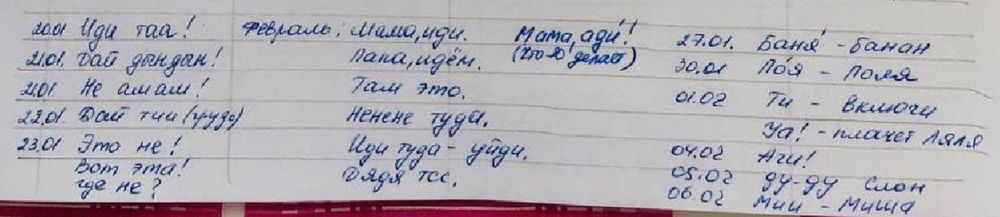 20.01 Иди таа!
21.01 Дай дындын!
21.01 Не амам!
22.01 Дай тии (грудь)
23.01 Это не!
Вот эта!
где не?
Февраль: Мама, иди.
Папа, идём.
Там это.
Ненене туда.
Иди туда - уйди.
Дядя тсс.
Мама, ади!!
(что-то делает)
27.01. Баня - банан
30.01 Поя - Поля
01.02 Ти - включи
Уа! - плачет Ляля
04.02 Аги!
05.02 ду-ду слон
06.02 Мии - Миша